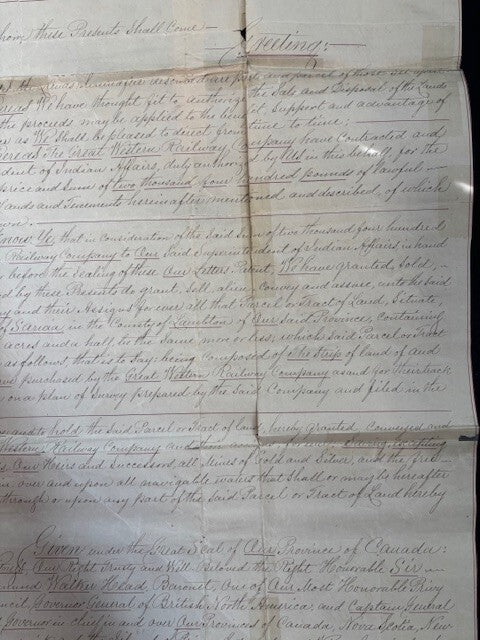 whom these Presents Shall Come
Greeting:
Lands hereinafter described are part and parcel of those set apart
We have thought fit to authorize the Sale and Disposal of the Lands
the proceeds may be applied to the benefit, Support and advantage of
as We Shall be pleased to direct from time to time;
Whereas The Great Western Railway Company have Contracted and
of Indian Affairs, duly authorized by Us in this behalf, for the
price and Sum of two thousand four hundred pounds of lawful
Lands and Tenements hereinafter mentioned and described, of which
Know Ye, that in consideration of the Said Sum of two thousand four hundred
Railway Company to Our Said Superintendent of Indian Affairs in hand
before the Sealing of these Our Letters Patent, We have granted, Sold,
by these Presents do grant, Sell, alien, Convey and assure, unto the Said
and their Assigns forever all that Parcel or Tract of Land, Situate,
of Sarnia, in the County of Lambton of Our Said Province, Containing
acres and a half, be the Same more or less; which Said Parcel or Tract
as follows, that is to Say: being Composed of the Strip of land of and
purchased by the Great Western Railway Company as and for their track
on a plan of Survey prepared by the Said Company and filed in the
and to hold the Said Parcel or Tract of Land, hereby granted Conveyed and
Western Railway Company and
Our Heirs and Successors, all Mines of Gold and Silver, and the free
over and upon all navigable waters that Shall or may be hereafter
through or upon any part of the Said Parcel or Tract of Land hereby
Given under the Great Seal of Our Province of Canada:
Our Right Trusty and Well Beloved the Right Honorable Sir
Walker Head, Baronet, One of Our Most Honorable Privy
Governor General of British North America and Captain General
Governor in Chief in and over Our Provinces of Canada, Nova Scotia, New